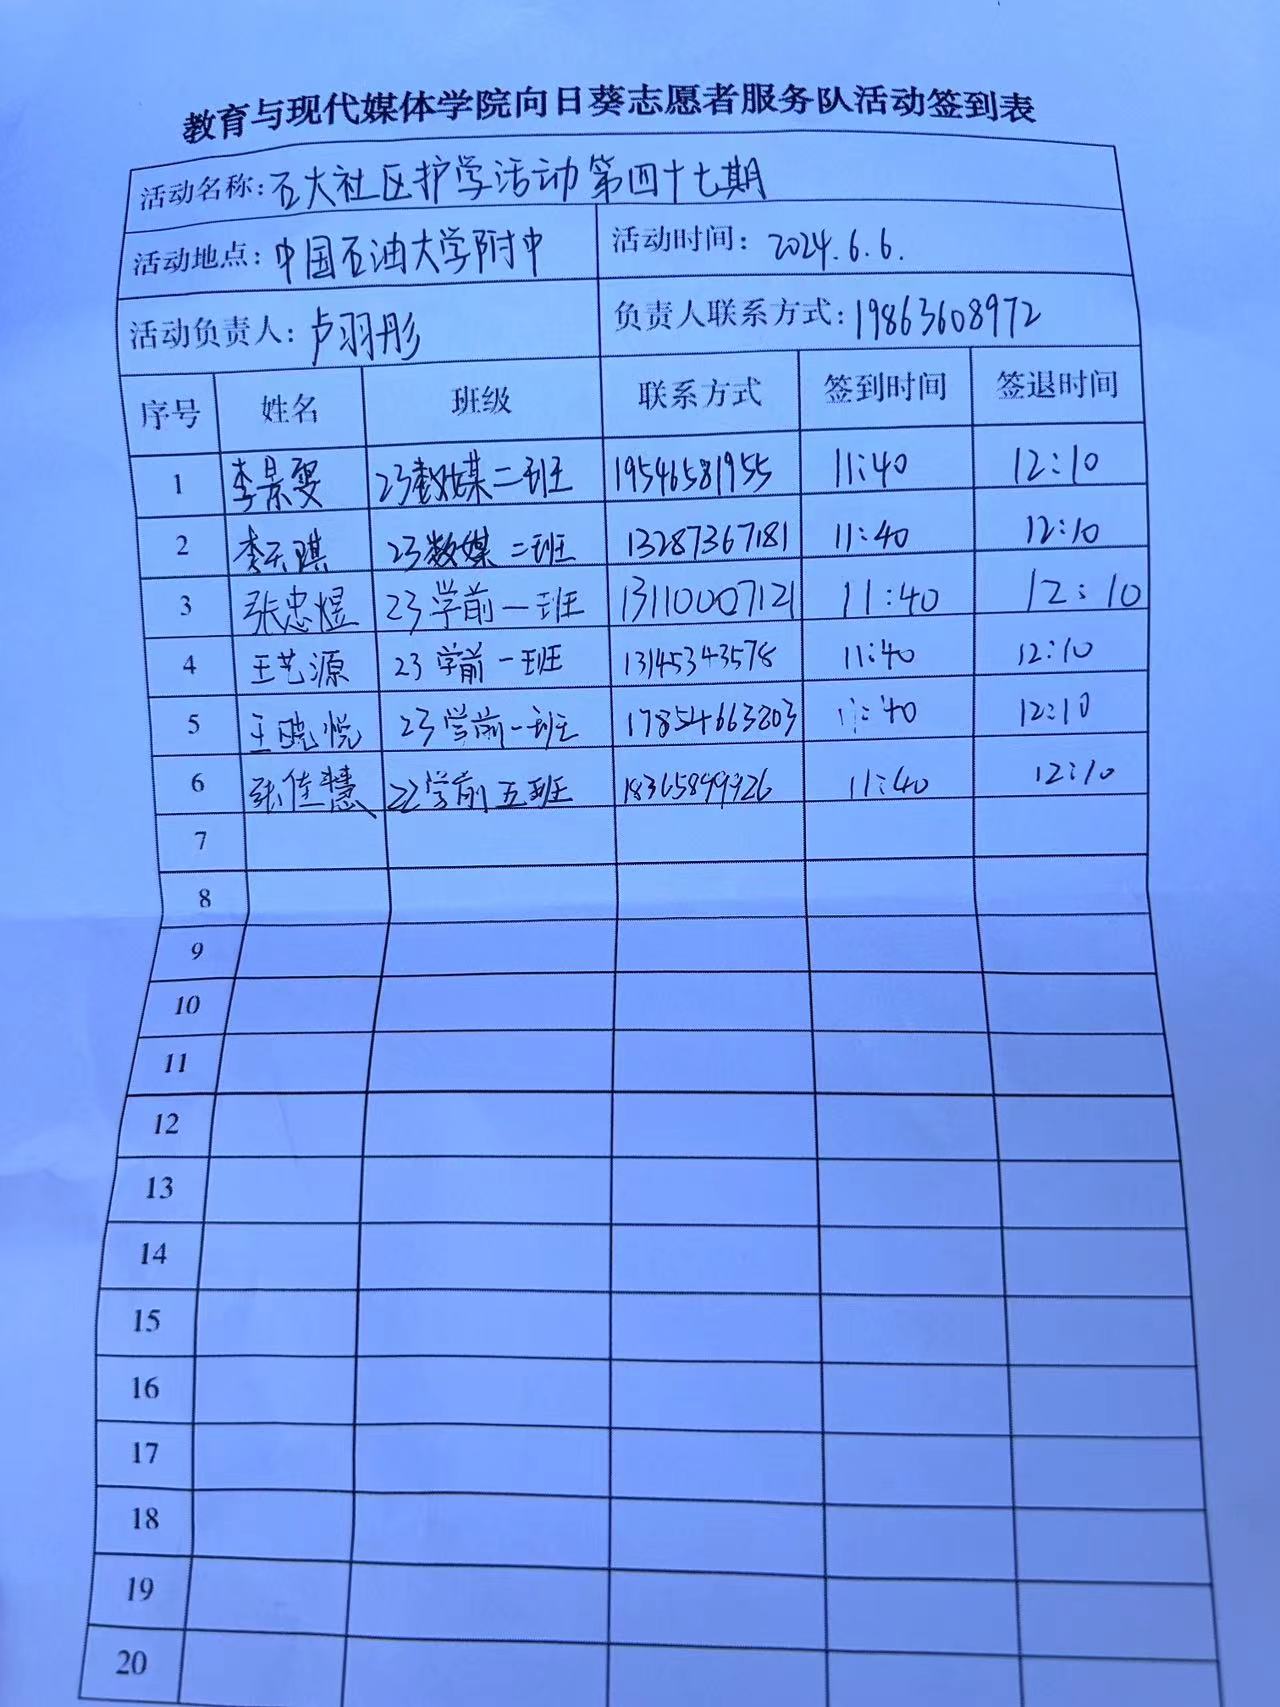 教育与现代媒体学院向日葵志愿者服务队活动签到表
活动名称:石大社区护学活动第四十七期
活动地点:中国石油大学附中 活动时间: 2024.6.6.
活动负责人:卢羽彤 负责人联系方式:19863608972
序号 姓名 班级 联系方式 签到时间 签退时间
1 李景雯 23数媒二班 19546581955 11:40 12:10
2 李天琪 23数媒二班 13287367181 11:40 12:10
3 张忠煜 23学前一班 13110007121 11:40 12:10
4 王艺源 23学前一班 13145343578 11:40 12:10
5 王晓悦 23学前一班 17854663803 11:40 12:10
6 张佳慧 22学前五班 11:40 12:10
7
8
9
10
11
12
13
14
15
16
17
18
19
20